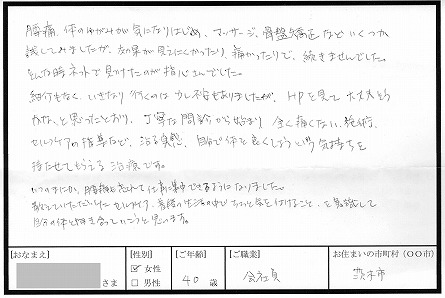 腰痛、体のゆがみが気になりはじめ、マッサージ、骨盤矯正などいくつか
試してみましたが、効果が見えにくかったり、痛かったりで、続きませんでした。
そんな時ネットで見つけたのが指心さんでした。
紹介もなく、いきなり行くのは少し不安もありましたが、HPを見て大丈夫そう
かな、と思ったとおり、丁寧な問診から始まり、全く痛くない施術、
セルフケアの指導など、治る実感、自分で体を良くしようという気持ちを
持たせてもらえる治療です。
いつのまにか、腰痛も忘れて仕事に集中できるようになりました。
教えていただいたセルフケア、普段の生活の中でちょっと気を付けること、を意識して
自分の体と向き合っていこうと思います。
【おなまえ】
さま
【性別】
☑ 女性
□ 男性
【ご年齢】
40 歳
【ご職業】
会社員
お住まいの市町村（〇〇市）